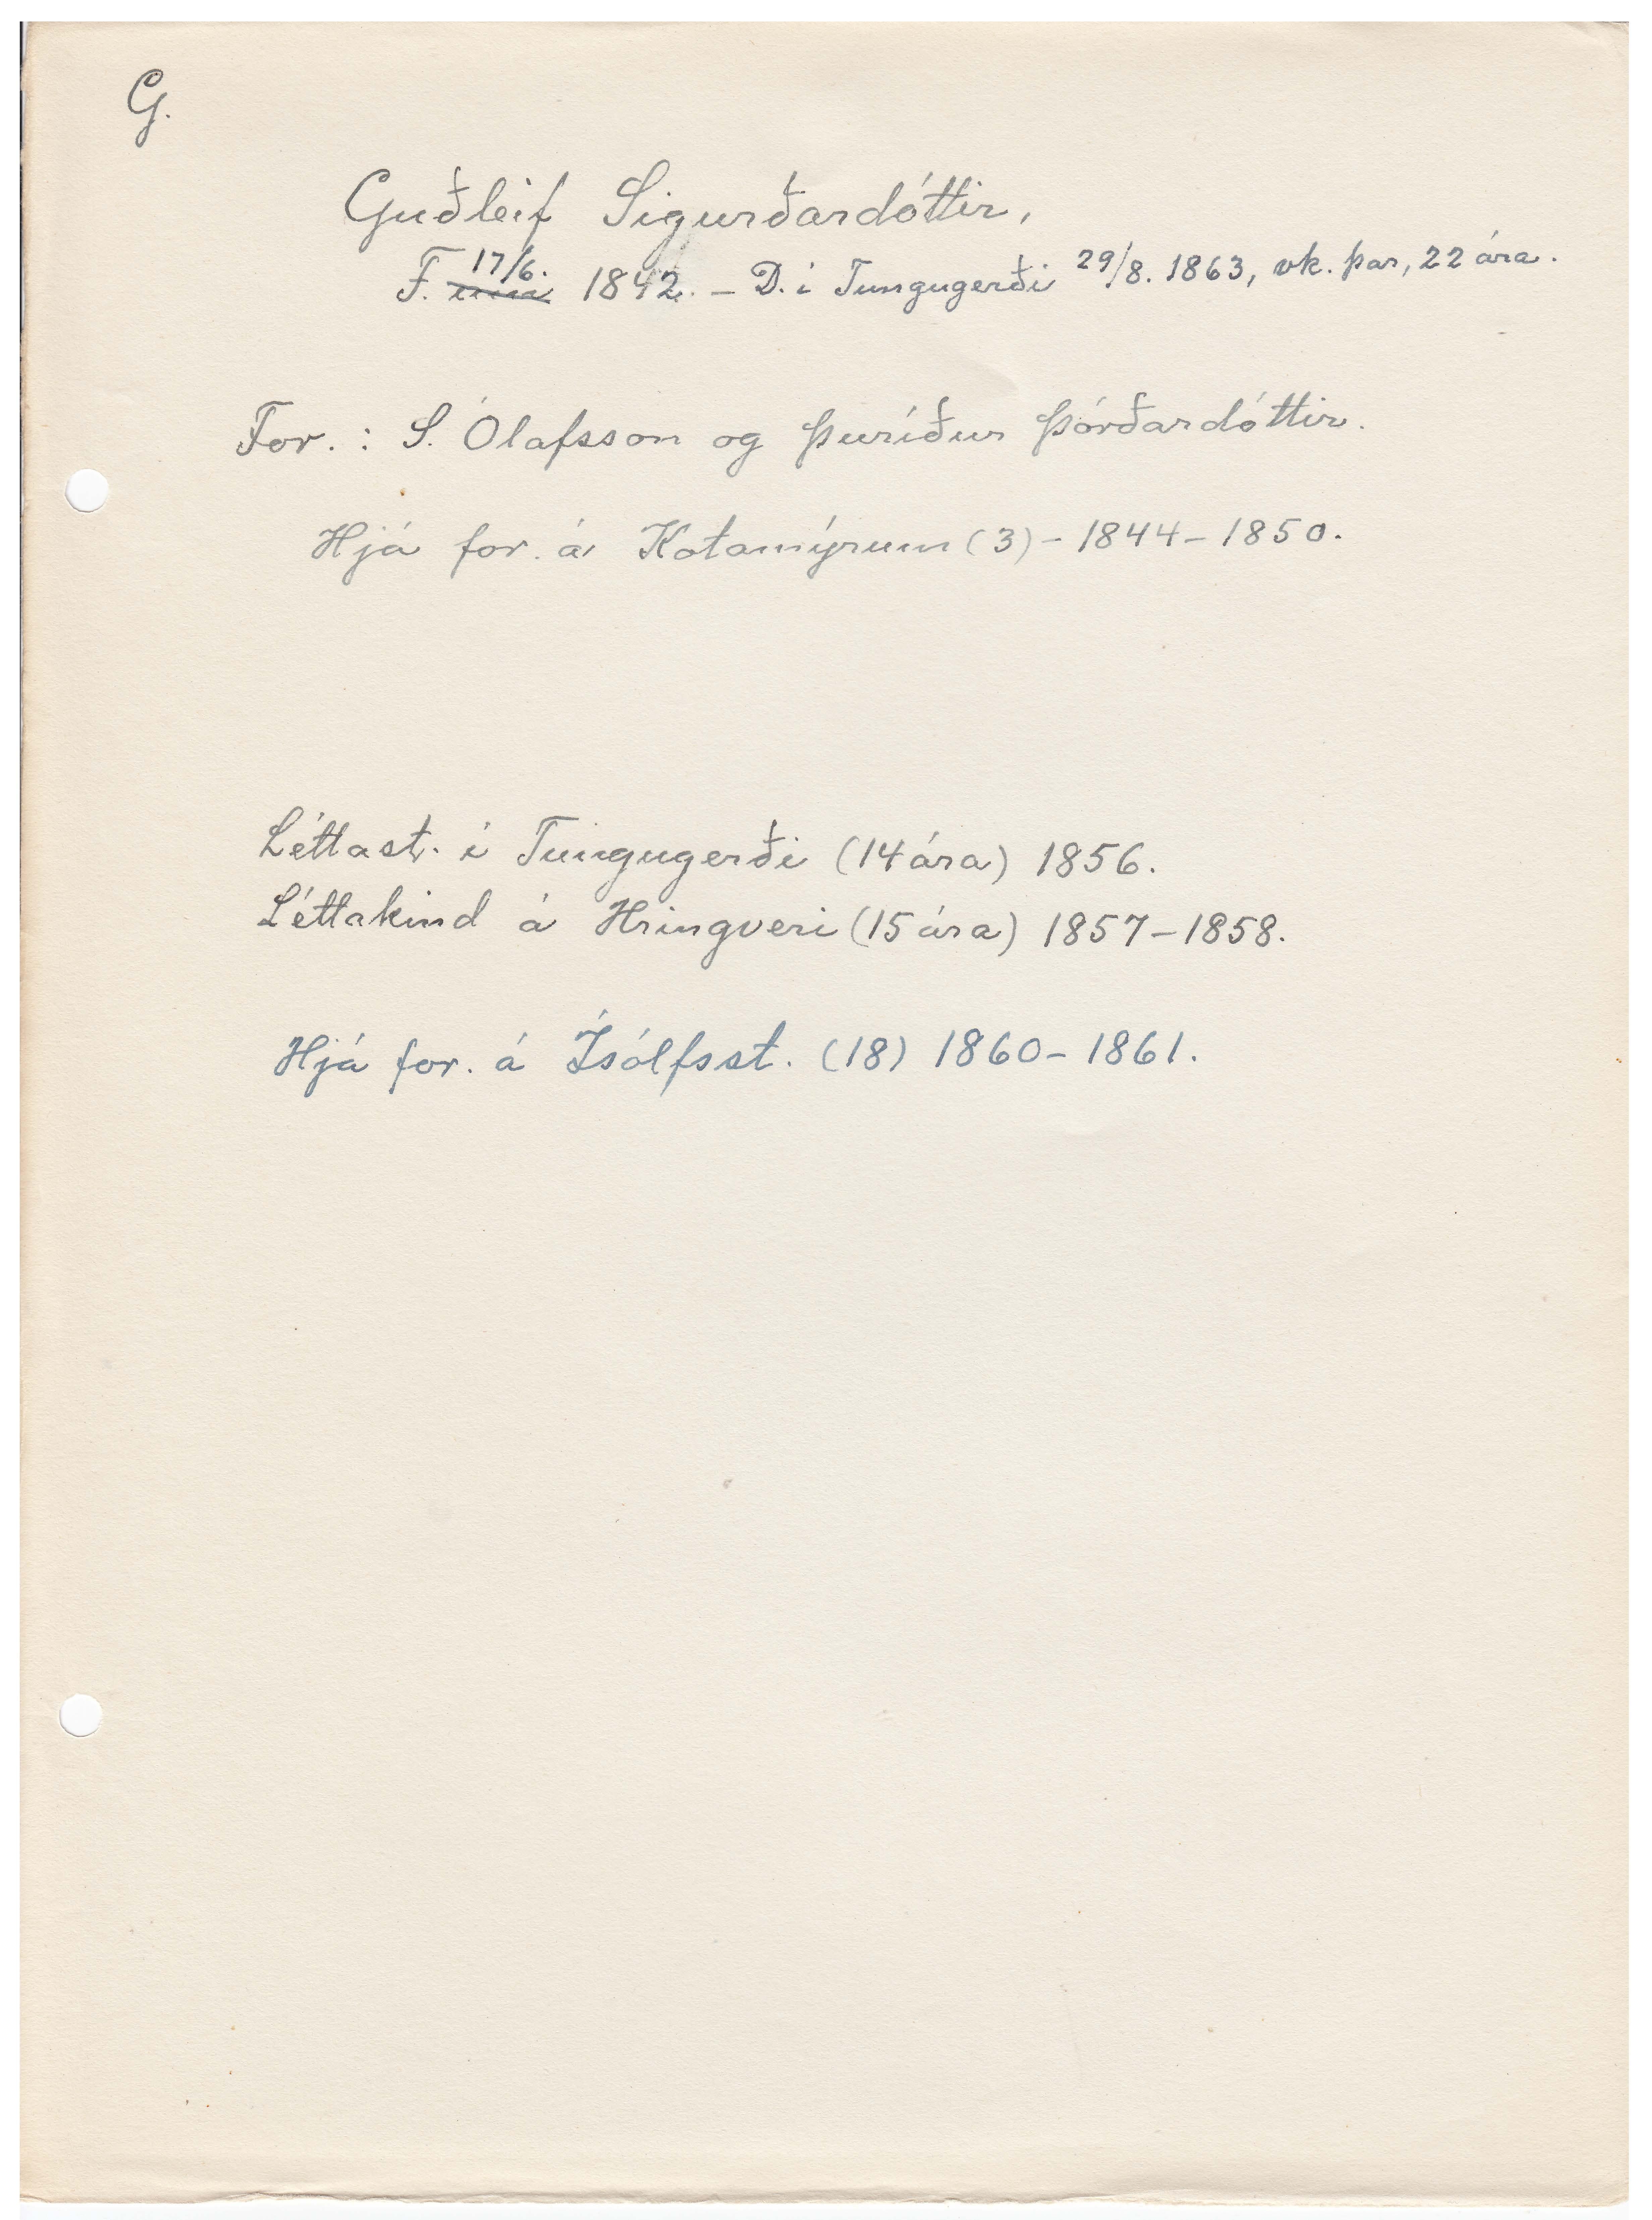 G.
Guðleif Sigurðardóttir,
F. 17/6. 1842. – D. í Tungugerði 29/8. 1863, vk. þar, 22 ára.
For.: S. Ólafsson og Þuríður Þórðardóttir.
Hjá for. á Kotamýrum (3) – 1844 – 1850.
Léttast. í Tungugerði (14 ára) 1856.
Léttakind á Hringveri (15 ára) 1857 – 1858.
Hjá for. á Ísólfsst. (18) 1860 – 1861.